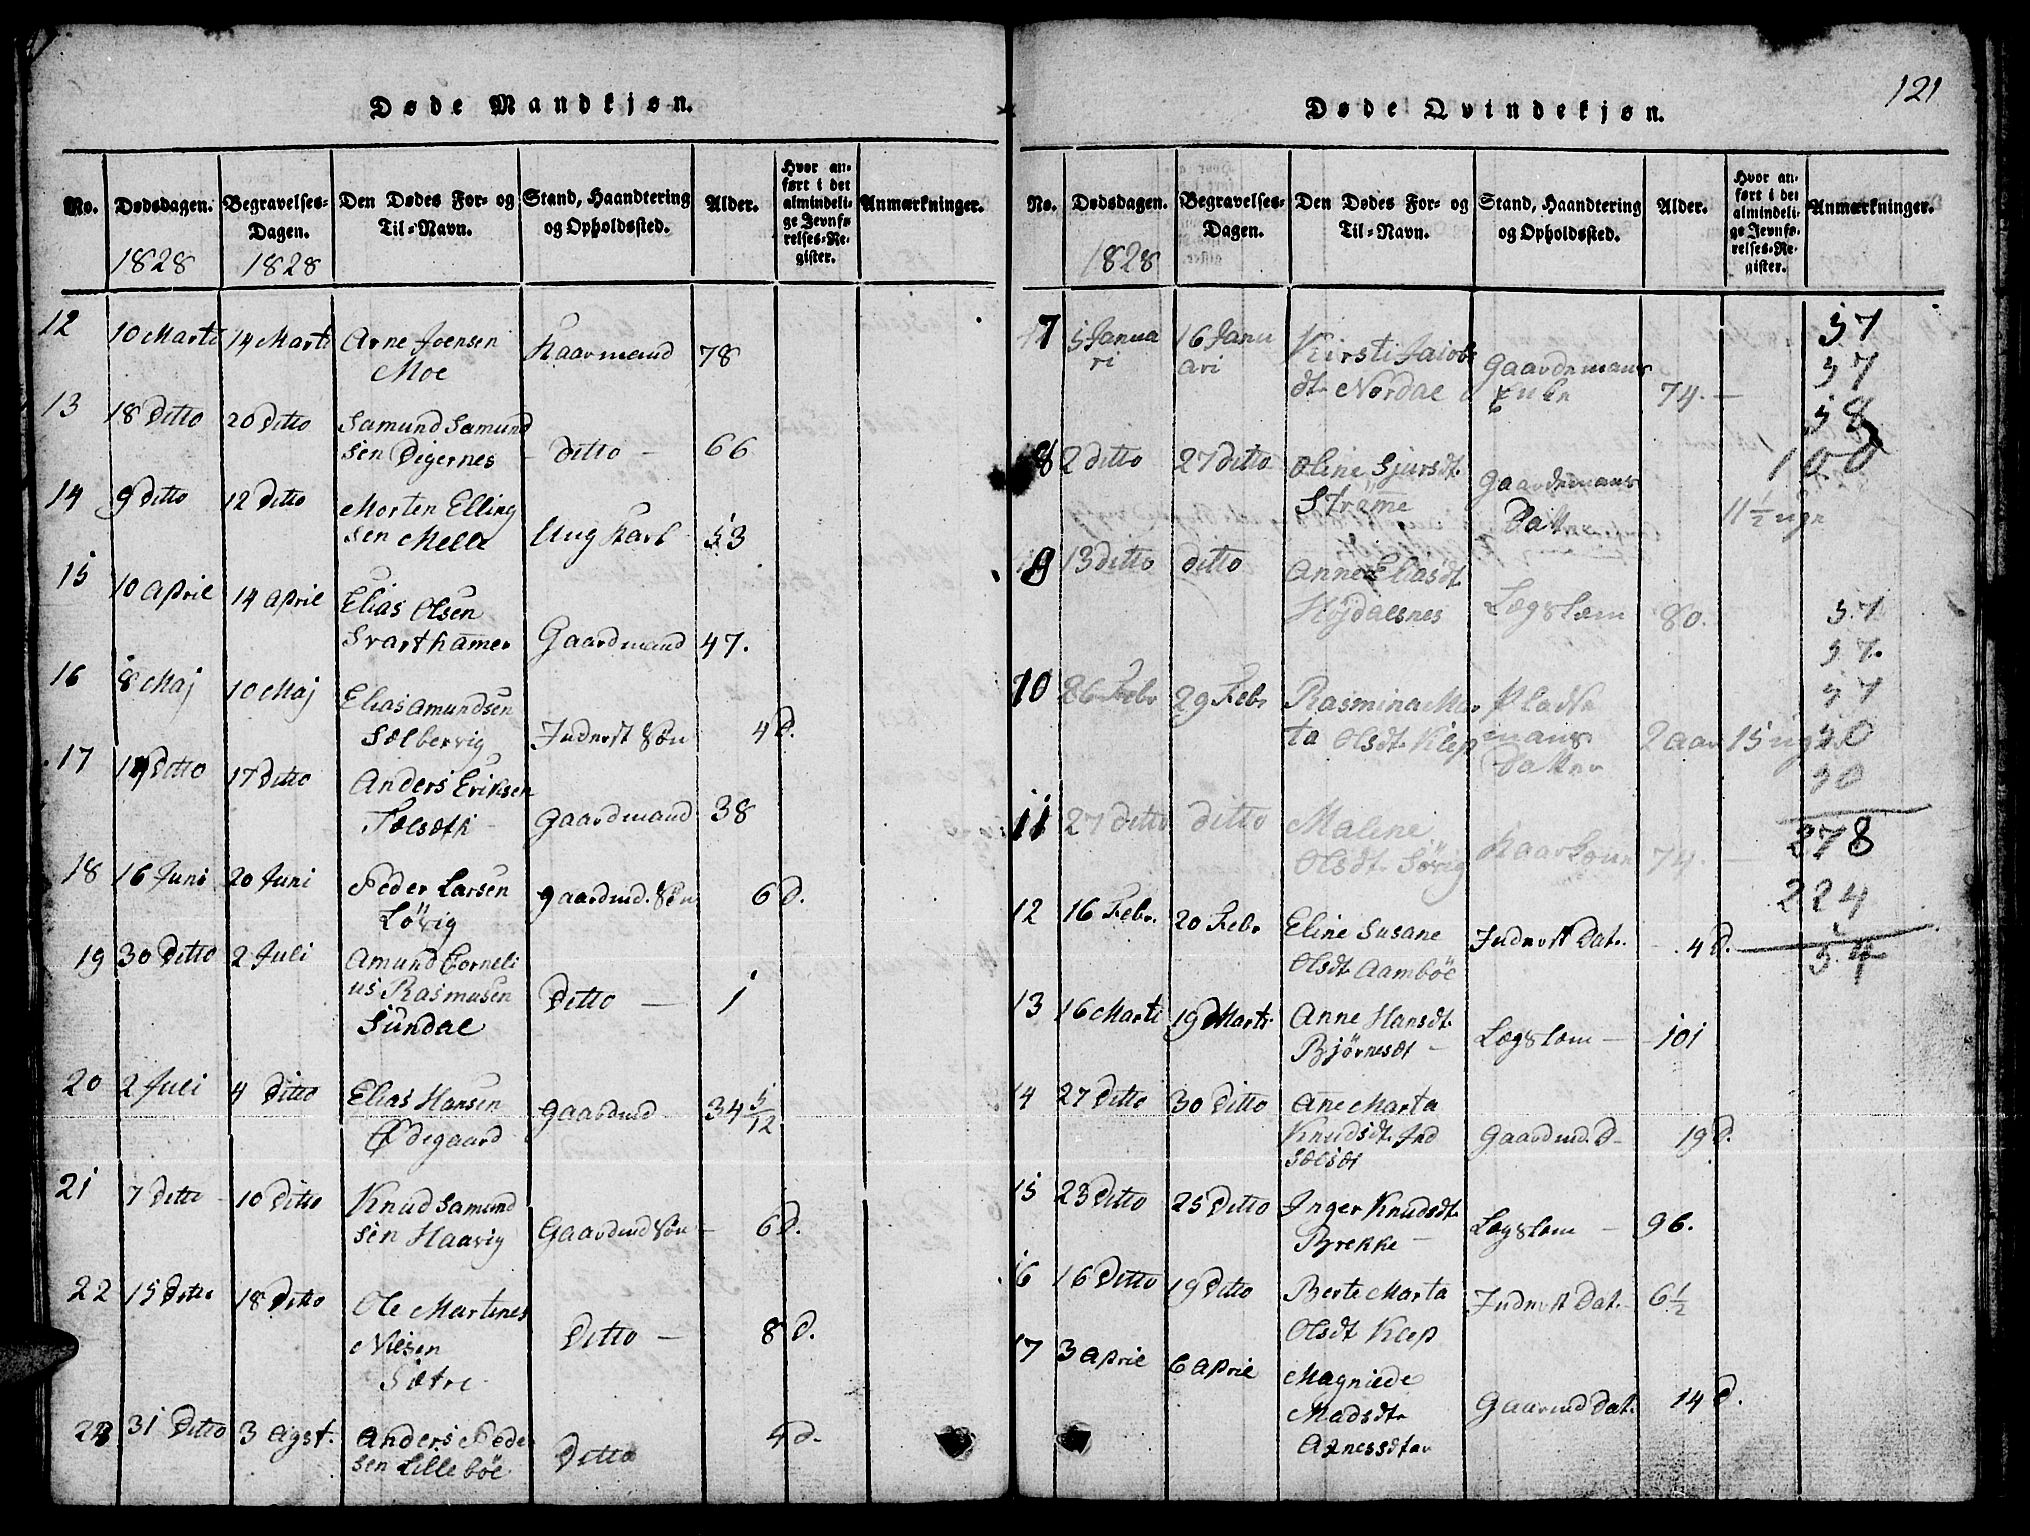 Døde Mandkjøn.
No.
Dødsdagen.
1828
Begravelses-
Dagen.
1828
Den Dødes For- og
Til-Navn.
Stand, Haandtering
og Opholdssted.
Alder.
Hvor an-
ført i det
almindeli-
ge Jevnfø-
relses-Re-
gister.
Anmærkninger.
12 10 Marti 14 Marti Arne Joensen
Moe Kaarmand 78
13 18 Ditto 20 Ditto Samund Samund
sen Digernes – Ditto – 66
14 9 Ditto 12 Ditto Morten Elling
sen Melle Ung Karl 53
15 10 April 14 April Elias Olsen
Svarthamer Gaardmand 47.
16 8 Maj 10 Maj Elias Amundsen
Sølbervig Inderst Søn 4 D.
17 Ditto 17 Ditto Anders Eriksen
Gaardmand 38
18 16 Juni 20 Juni Peder Larsen
Løvig gaardmd. Søn 6 D.
19 30 Ditto 2 Juli Amund Corneli
us Rasmusen
Sundal Ditto – 1
20 2 Juli 4 Ditto Elias Hansen
Ødegaard gaardmd 34 5/12
21 7 Ditto 10 Ditto Knud Samund
sen Haavig Gaardmd Søn – 6 D.
22 15 Ditto 18 Ditto Ole Martines
Nilsen
Sætre Ditto – 8 D.
23 31 Ditto 3 Agst. Anders Peder
sen Lillebøe Ditto 4 D.
121
Døde Qvindekjøn.
No.
Dødsdagen.
1828
Begravelses-
Dagen.
Den Dødes For- og
Til-Navn.
Stand, Haandtering
og Opholdssted.
Alder.
Hvor an-
ført i det
almindeli-
ge Jevnfø-
relses-Re-
gister.
Anmærkninger.
7 5 Janua
ri 16 Janu
ari Kirsti Jaiobs
dt. Nordal Gaardemans
Enke 74. –
8 2 Ditto 27 Ditto Oline Sjursdt.
Strømme Gaardemans
Datter 11½ uge
9 13 Ditto Ditto Anne Eliasdt.
Højdalsnes Lægslem 80.
10 26 Febr 29 Febr Rasmina Mar
ta Olsdt. Klep Pladse
mans
Datter 2 aar 15 uger
11 27 Ditto Ditto Maline
Olsdt. Søvig Kaarkone 74. –
12 16 Febr. 20 Febr Eline Susane
Olsdt Aambøe Inderst Dat. – 4 D.
13 16 Marti 19 Marti Anne Hansdt.
Lægslem – 101
14 27 Ditto 30 Ditto Ane Marta
Knudsdt. Ind
Gaardmd. D– 19 D.
15 23 Ditto 25 Ditto Inger Knudsdt.
Brekke – Lægslem – 96.
16 16 Ditto 19 Ditto Berte Marta
Olsdt Klep Inderst Dat. 6½
17 3 April 6 April Magnilde
Madsdt.
Gaarmd Dat. 14 D.
57
57
58
100
57
57.
57
50
50
278
224
54